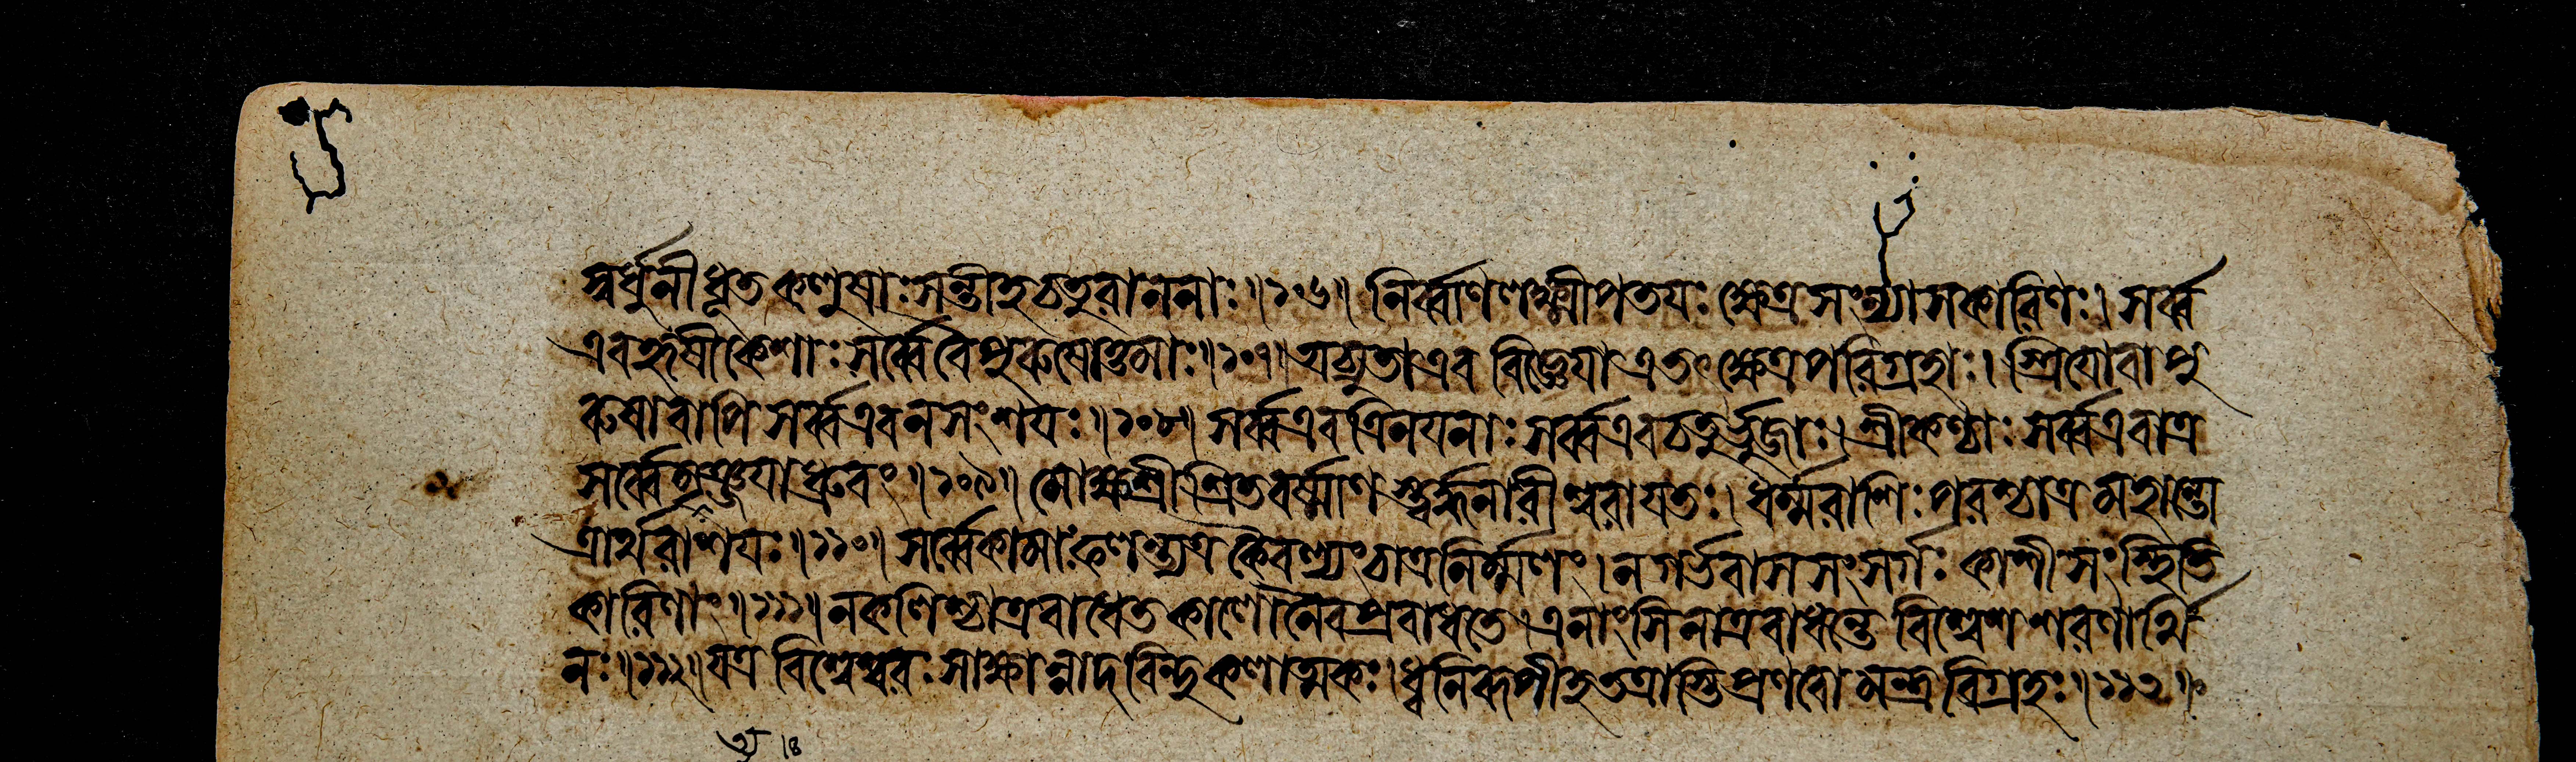 স্বর্ধুনীধূতকলুষাঃসন্তীহচতুরাননাঃ॥১০৬॥ নির্ব্বাণলক্ষ্মীপতযঃ ক্ষেত্রসংন্যাসকারিণঃ। সর্ব্ব
এবহৃষীকেশাঃসর্ব্বেবৈপুরুষোত্তমাঃ॥১০৭॥অচ্যুতাএব বিজ্ঞেযাএতৎক্ষেত্রপরিগ্রহাঃ। স্ত্রিযোবাপু
রুষাবাপি সর্ব্বএবনসংশযঃ॥১০৮॥ সর্ব্বএবত্রিনযনাঃসর্ব্বএবচতুর্ভুজাঃ। শ্রীকণ্ঠাঃসর্ব্বএবাত্র
সর্ব্বেমৃত্যুঞ্জযাধ্রুবং॥১০৯॥ মোক্ষশ্রীশ্রিতবর্ষ্মাণ স্ত্বর্দ্ধনারীশ্বরাযতঃ। ধর্ম্মরাশিঃপরশ্চাত্রমহান্তো
ত্রার্থরাশযঃ॥১১০॥ সর্ব্বেকামাঃফলন্ত্যত্র কৈবল্যংচাত্রনির্ম্মলং। নগর্ভবাসসংসর্গঃ কাশীসংস্থিতি
কারিণাং॥১১১॥নকলিশ্চাত্রবাধেত কালোনৈবপ্রবাধতে। এনাংসিনাত্রবাধন্তে বিশ্বেশশরণার্থি
নঃ॥১১২॥যত্র বিশ্বেশ্বরঃসাক্ষান্নাদবিন্দুকলাত্মকঃ। ধ্বনিরূপীহতত্রাস্তিপ্রণবোমন্ত্রবিগ্রহঃ॥১১৩॥